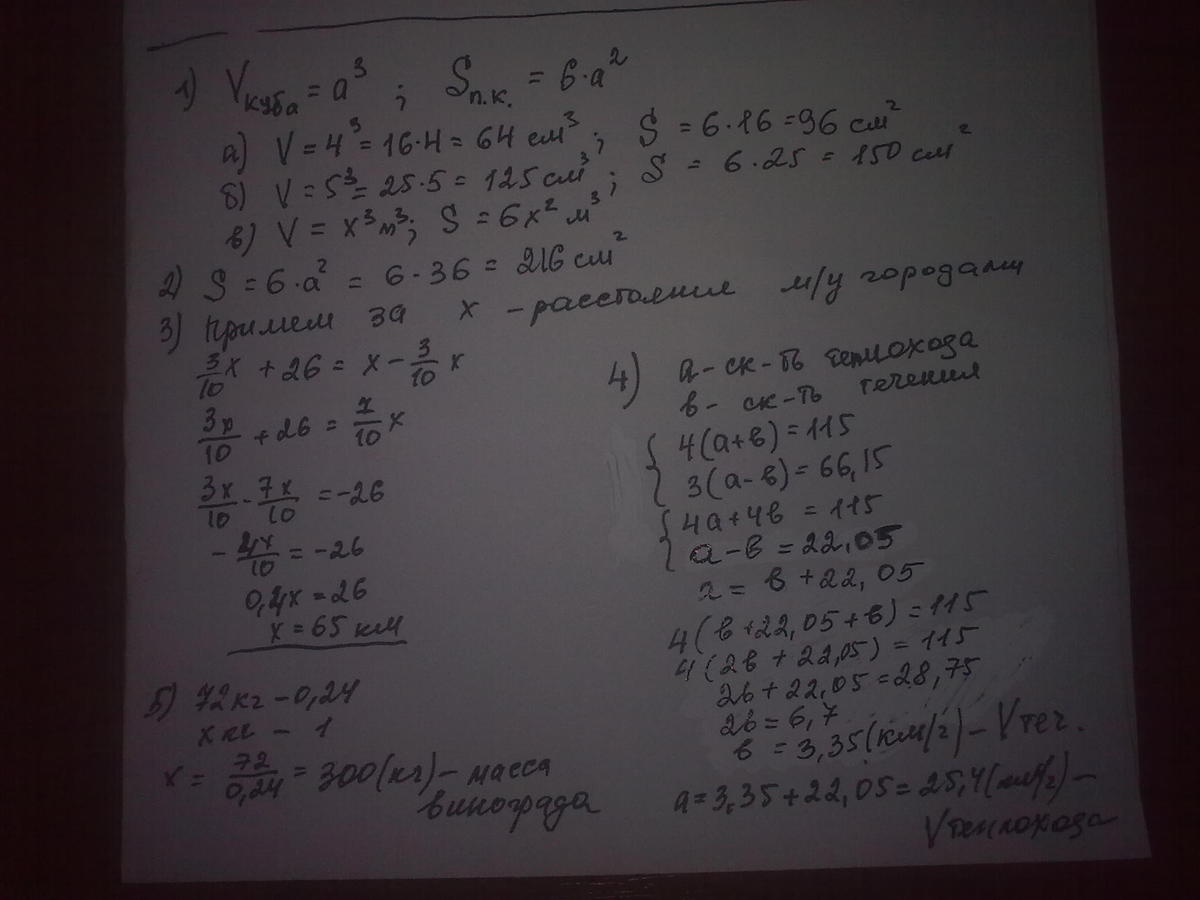 1) Vкуба = a³ ; Sп.к. = 6·a²
а) V = 4³ = 16·4 = 64 см³ ; S = 6·16 = 96 см²
б) V = 5³ = 25·5 = 125 см³ ; S = 6·25 = 150 см²
в) V = x³ м³; S = 6x² м³
2) S = 6·a² = 6·36 = 216 см²
3) Примем за x – расстояния м/у городами
3/10 x + 26 = x – 3/10 x
3x/10 + 26 = 7/10 x
3x/10 - 7x/10 = -26
- 4x/10 = -26
0,4x = 26
x = 65 км
4) а – ск-ть теплохода
в – ск-ть течения
{ 4(а+в) = 115
3(а-в) = 66,15
{ 4а+4в = 115
а – в = 22,05
а = в + 22,05
4(в+22,05+в) = 115
4(2в + 22,05) = 115
2в + 22,05 = 28,75
2в = 6,7
в = 3,35 (км/г) – Vтеч.
а = 3,35 + 22,05 = 25,4 (км/г) –
Vтеплохода
5) 72 кг – 0,24
x кг – 1
x = 72/0,24 = 300 (кг) – масса
винограда